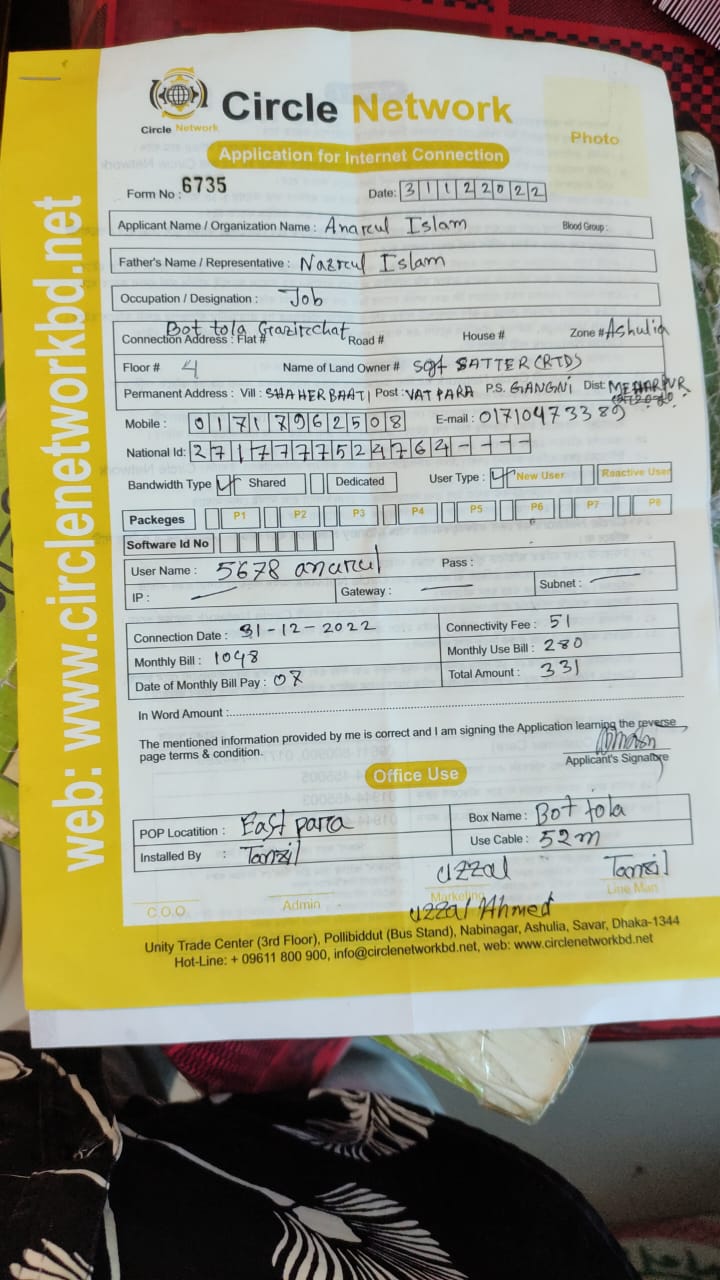 Circle Network
Circle Network
Photo
Application for Internet Connection
Form No : 6735
Date: 31122022
Applicant Name / Organization Name : Anarul Islam
Blood Group :
Father's Name / Representative : Nazrul Islam
Occupation / Designation : Job
Bot tola Gazirchat
Connection Address : Flat # Road # House # Zone # Ashulia
Floor # 4 Name of Land Owner # Sgt SATTER (RTD)
Permanent Address : Vill : SHAHERBAATI Post : VATPARA P.S. GANGNI Dist: MEHARPUR
Mobile : 01717962508 E-mail : 01710473389
National Id: 2717777524764----
Bandwidth Type Shared Dedicated User Type : New User Reactive User
Packeges P1 P2 P3 P4 P5 P6 P7 P8
Software Id No
User Name : 5678 anarul Pass :
IP : — Gateway : — Subnet : —
Connection Date : 31-12-2022 Connectivity Fee : 51
Monthly Bill : 1048 Monthly Use Bill : 280
Date of Monthly Bill Pay : 08 Total Amount : 331
In Word Amount :
The mentioned information provided by me is correct and I am signing the Application learning the reverse
page terms & condition.
Applicant's Signatore
Office Use
POP Locatition : East para Box Name : Bot tola
Installed By : Tanzil Use Cable : 52m
uzzal Tanzil
C.O.O. Admin Marketing Line Man
uzzal Ahmed
Unity Trade Center (3rd Floor), Pollibiddut (Bus Stand), Nabinagar, Ashulia, Savar, Dhaka-1344
Hot-Line: + 09611 800 900, info@circlenetworkbd.net, web: www.circlenetworkbd.net
web: www.circlenetworkbd.net